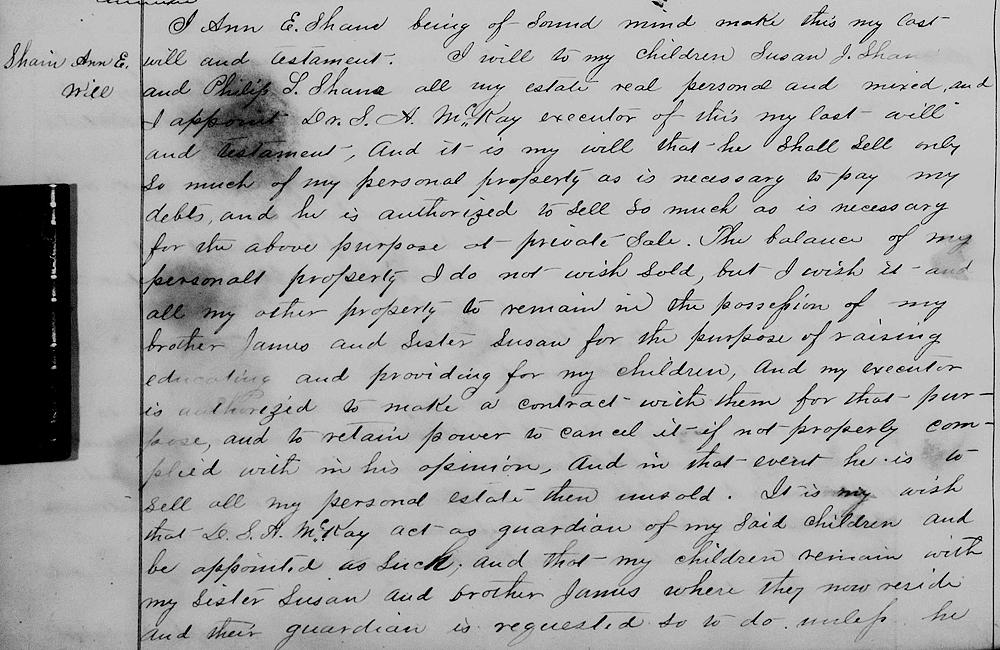 I Ann E. Shane being of Sound mind make this my last
Shain Ann E. will and testament. I will to my children Susan J. Shan
Will and Philip S. Shane all my estate real personal and mixed, and
I appoint Dr. S. A. McKay executor of this my last will
and testament, And it is my will that he Shall Sell only
So much of my personal property as is necessary to pay my
debts, and he is authorized to Sell So much as is necessary
for the above purpose at private Sale. The balance of my
personalt property I do not wish Sold, but I wish it and
all my other property to remain in the possession of my
brother James and Sister Susan for the purpose of raising
educating and providing for my children, And my executor
is authorized to make a contract with them for that pur-
pose, and to retain power to cancel it if not properly com-
plied with in his opinion, And in that event he is to
Sell all my personal estate then unsold. It is my wish
that D. S. A. McKay act as guardian of my Said children and
be appointed as Such, and that my children remain with
my Sister Susan and brother James where they now reside
and their guardian is requested So to do unless he